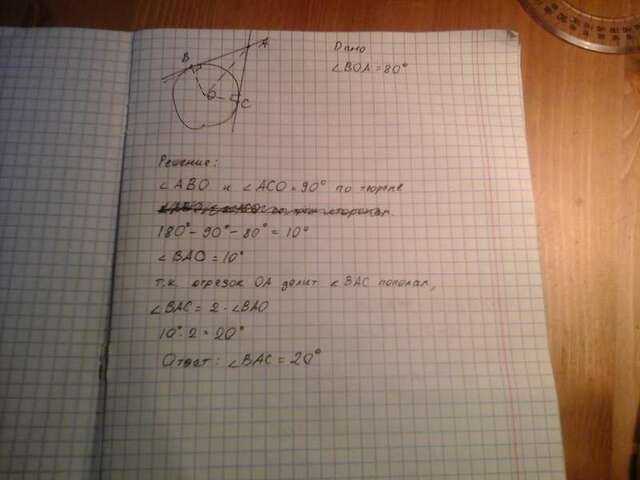 A
B
O
C
Дано
∠BOA = 80°
Решение:
∠ABO и ∠ACO = 90° по теореме
180° - 90° - 80° = 10°
∠BAO = 10°
т.к. отрезок OA делит ∠BAC пополам,
∠BAC = 2 · ∠BAO
10° · 2 = 20°
Ответ: ∠BAC = 20°